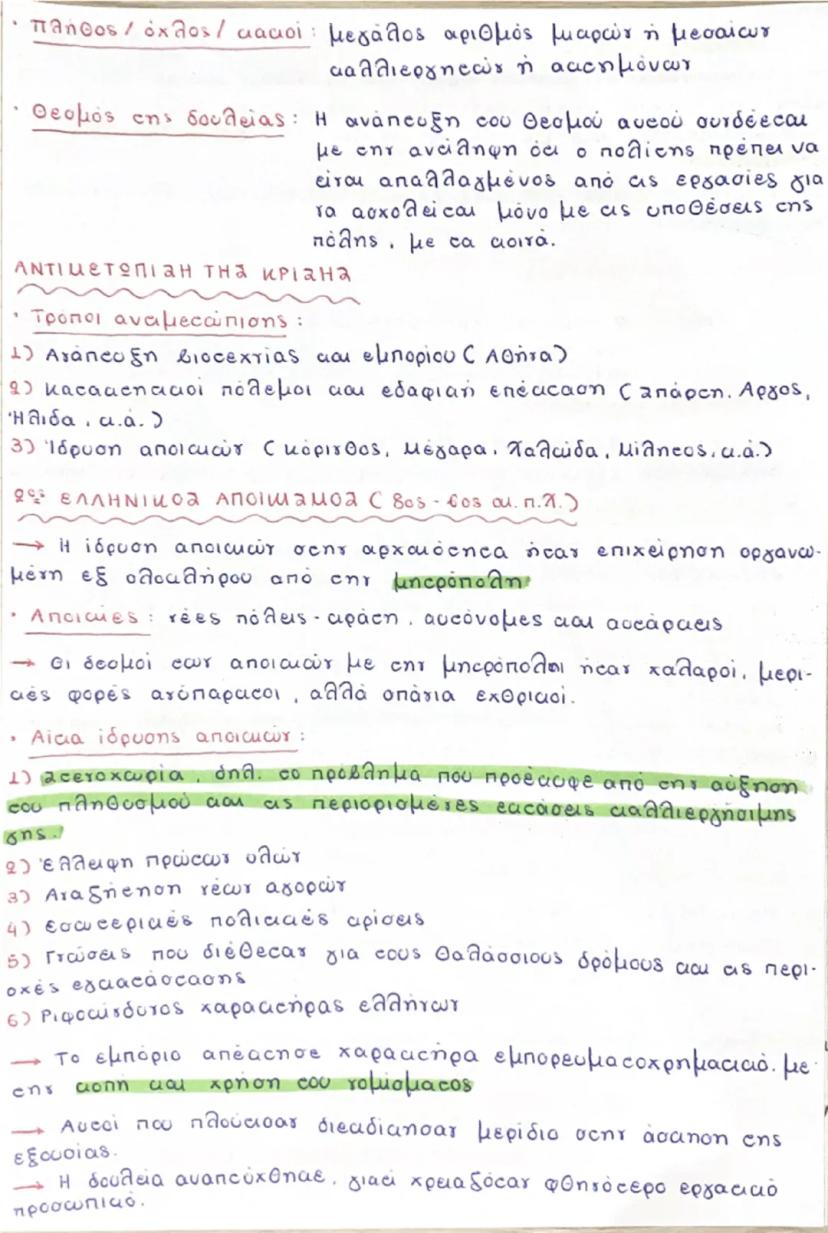 · Πλήθος / όχλος / κακοί : μεγάλος αριθμός μικρών ή μεσαίων
καλλιεργητών ή ακτημόνων
· Θεσμός της δουλείας : Η ανάπτυξη του θεσμού αυτού συνδέεται
με την αντίληψη ότι ο πολίτης πρέπει να
είναι απαλλαγμένος από τις εργασίες για
να ασχολείται μόνο με τις υποθέσεις της
πόλης, με τα κοινά.
ΑΝΤΙΜΕΤΩΠΙΣΗ ΤΗΣ ΚΡΙΣΗΣ
· Τρόποι αντιμετώπισης :
1) Ανάπτυξη βιοτεχνίας και εμπορίου (Αθήνα)
2) Κατακτητικοί πόλεμοι και εδαφική επέκταση (Σπάρτη, Άργος,
Ήλιδα, κ.ά.)
3) Ίδρυση αποικιών (Κόρινθος, Μέγαρα, Χαλκίδα, Μίλητος, κ.ά.)
2ος ΕΛΛΗΝΙΚΟΣ ΑΠΟΙΚΙΣΜΟΣ (8ος - 6ος αι. π.Χ.)
→ Η ίδρυση αποικιών στην αρχαιότητα ήταν επιχείρηση οργανω-
μένη εξ ολοκλήρου από την μητρόπολη
· Αποικίες : νέες πόλεις - κράτη, αυτόνομες και αυτάρκεις
→ Οι δεσμοί των αποικιών με την μητρόπολη ήταν χαλαροί, μερι-
κές φορές ανύπαρκτοι, αλλά σπάνια εχθρικοί.
· Αίτια ίδρυσης αποικιών :
1) Στενοχωρία, δηλ. το πρόβλημα που προέκυψε από την αύξηση
του πληθυσμού και τις περιορισμένες εκτάσεις καλλιεργήσιμης
γης.
2) Έλλειψη πρώτων υλών
3) Αναζήτηση νέων αγορών
4) Εσωτερικές πολιτικές κρίσεις
5) Γνώσεις που διέθεταν για τους θαλάσσιους δρόμους και τις περι-
οχές εγκατάστασης
6) Ριψοκίνδυνος χαρακτήρας ελλήνων
→ Το εμπόριο απέκτησε χαρακτήρα εμπορευματοχρηματικό, με
την κοπή και χρήση του νομίσματος
→ Αυτοί που πλούτισαν διεκδίκησαν μερίδιο στην άσκηση της
εξουσίας.
→ Η δουλεία αναπτύχθηκε, γιατί χρειαζόταν φθηνότερο εργατικό
προσωπικό.